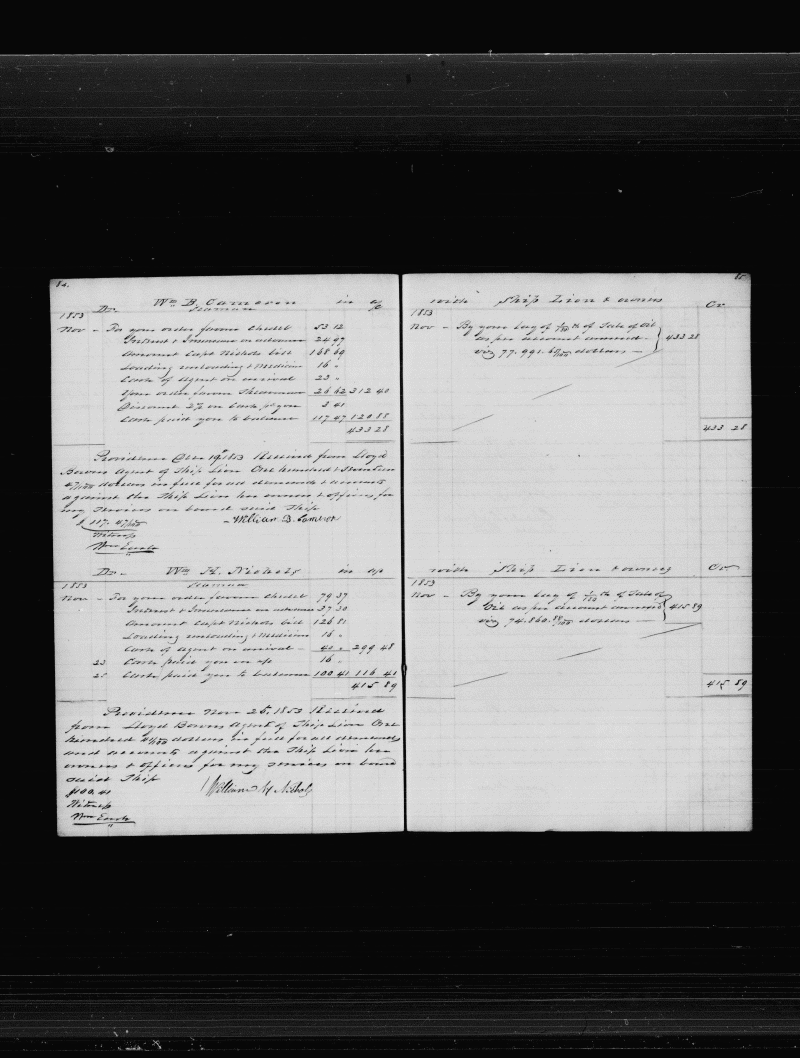 84.
Wm B. Cameron in a/c
Dr. Seaman
1853
Nov - To your order favor Chilet 53 12
Interest & Insurance on advance 24 97
Amount Capt Nichols bill 168 69
Loading unloading & Medicine 16 "
Cash of Agent on arrival 23 "
Your order favor 26 62 312 40
Discount 2% on Cash pd you 3 41
Cash paid you to balance 117 47 120 88
433 28
Providence Dec 19th 1853 Received from Lloyd
Bowers Agent of Ship Lion One hundred & Seventeen
47/100 dollars in full for all demands & accounts
against the Ship Lion her owners & officers for
my services on board said Ship
$117. 47/100 William B. Cameron
Witness
Wm Earle
Dr. Wm H. Nichols in a/c
1853 Seaman
Nov - To your order favor Chilet 79 37
Interest & Insurance on advance 37 30
Amount Capt Nichols bill 126 81
Loading unloading & Medicine 16 "
Cash of Agent on arrival - 40 " 299 48
23 Cash paid you on a/c 16 "
25 Cash paid you to balance 100 41 116 41
415 89
Providence Nov 25, 1853 Received
from Lloyd Bowers Agent of Ship Lion One
hundred 41/100 dollars in full for all demands
and accounts against the Ship Lion her
owners & officers for my services on board
said Ship
$100.41 William H Nichols
Witness
Wm Earle
85
with Ship Lion & owners Cr.
1853
Nov - By your lay of th of Sale of Oil
as per account annexed 433 28
viz 77.991.69/100 dollars -
433 28
with Ship Lion & owners Cr
1853
Nov - By your lay of th of Sale of
Oil as per account annexed 415 89
viz 74.860. 88/100 dollars -
415 89